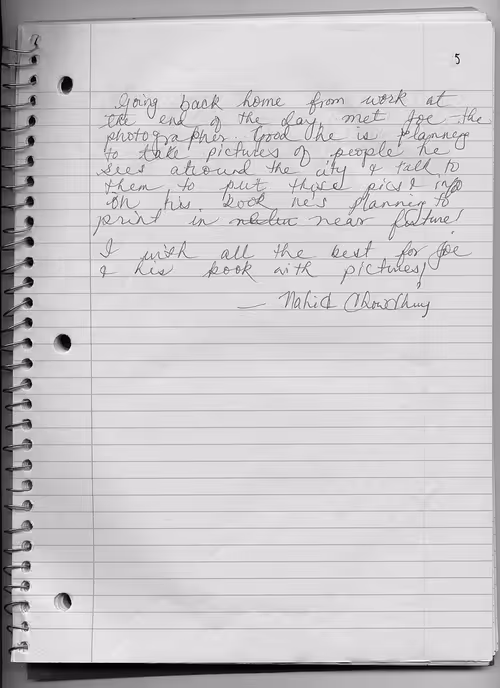 5
Going back home from work at
the end of the day, met Joe the
photographer. Good he is planning
to take pictures of people he
sees around the city & talk to
them, to put those pics & info
on his book he's planning to
print in near future!
I wish all the best for Joe
& his book with pictures!
— Nahid Chowdhury